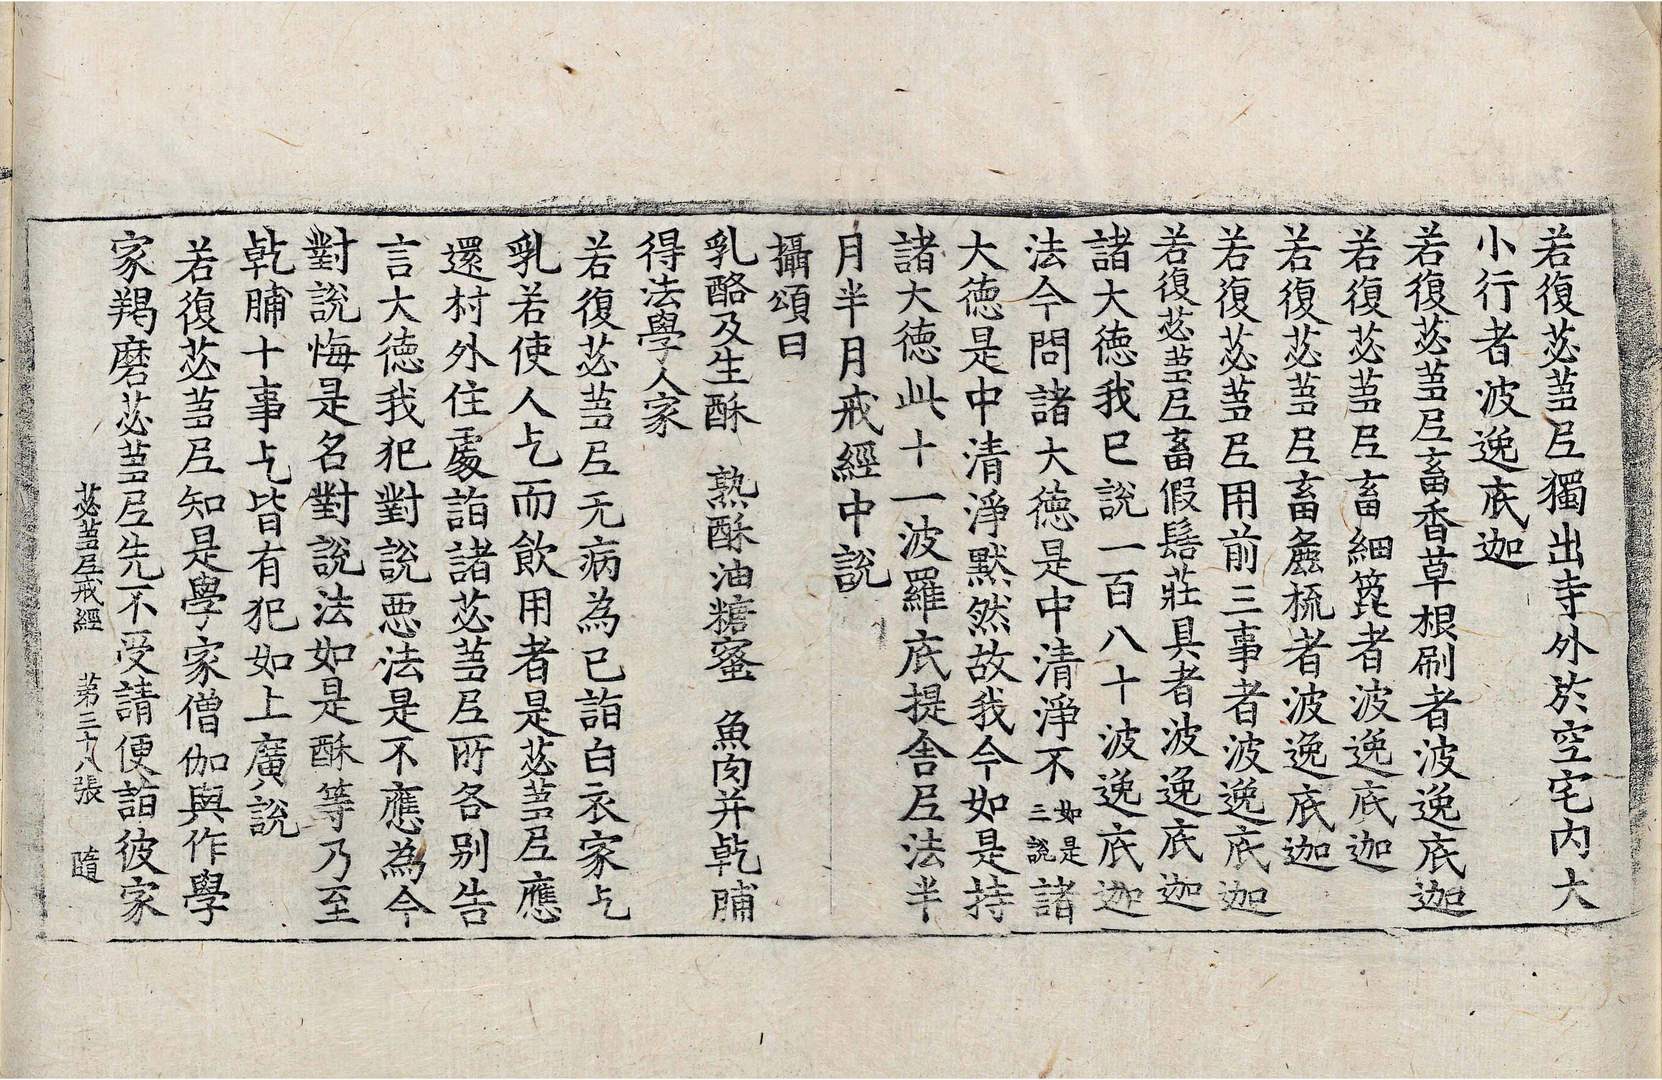 若復苾蒭尼獨出寺外於空宅內大
小行者波逸底迦
若復苾蒭尼畜香草根刷者波逸底迦
若復苾蒭尼畜細篦者波逸底迦
若復苾蒭尼畜麁梳者波逸底迦
若復苾蒭尼用前三事者波逸底迦
若復苾蒭尼畜假髻莊具者波逸底迦
諸大德我已說一百八十波逸底迦
法今問諸大德是中清淨不如是三說諸
大德是中清淨默然故我今如是持
諸大德此十一波羅底提舍尼法半
月半月戒經中說
攝頌曰
乳酪及生酥　熟酥油糖蜜　魚肉并乾脯
得法學人家
若復苾蒭尼无病為己詣白衣家乞
乳若使人乞而飲用者是苾蒭尼應
還村外住處詣諸苾蒭尼所各別告
言大德我犯對說惡法是不應為今
對說悔是名對說法如是酥等乃至
乾脯十事乞皆有犯如上廣說
若復苾蒭尼知是學家僧伽與作學
家羯磨苾蒭尼先不受請便詣彼家
苾蒭尼戒經　第三十八張　隨